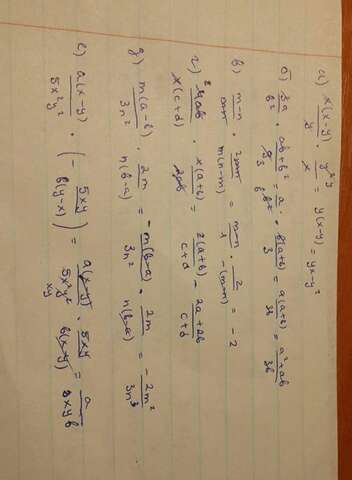 а) x(x-y)/y · y²/x = y(x-y) = yx-y²
б) 3a/b² · ab+b²/9 = a · b(a+b)/3 = a(a+b)/3b = a²+ab/3b
в) m-n/ · 2/m(n-m) = m-n/1 · 2/-(m-n) = -2
г) 4ab/x(c+d) · x(a+b)/2ab = 2(a+b)/c+d = 2a+2b/c+d
д) m(a-b)/3n² · 2m/n(b-a) = -m(b-a)/3n² · 2m/n(b-a) = -2m²/3n³
е) a(x-y)/5x²y² · (-5xy/b(y-x)) = a(x-y)/5x²y² · 5xy/b(x-y) = a/xyb